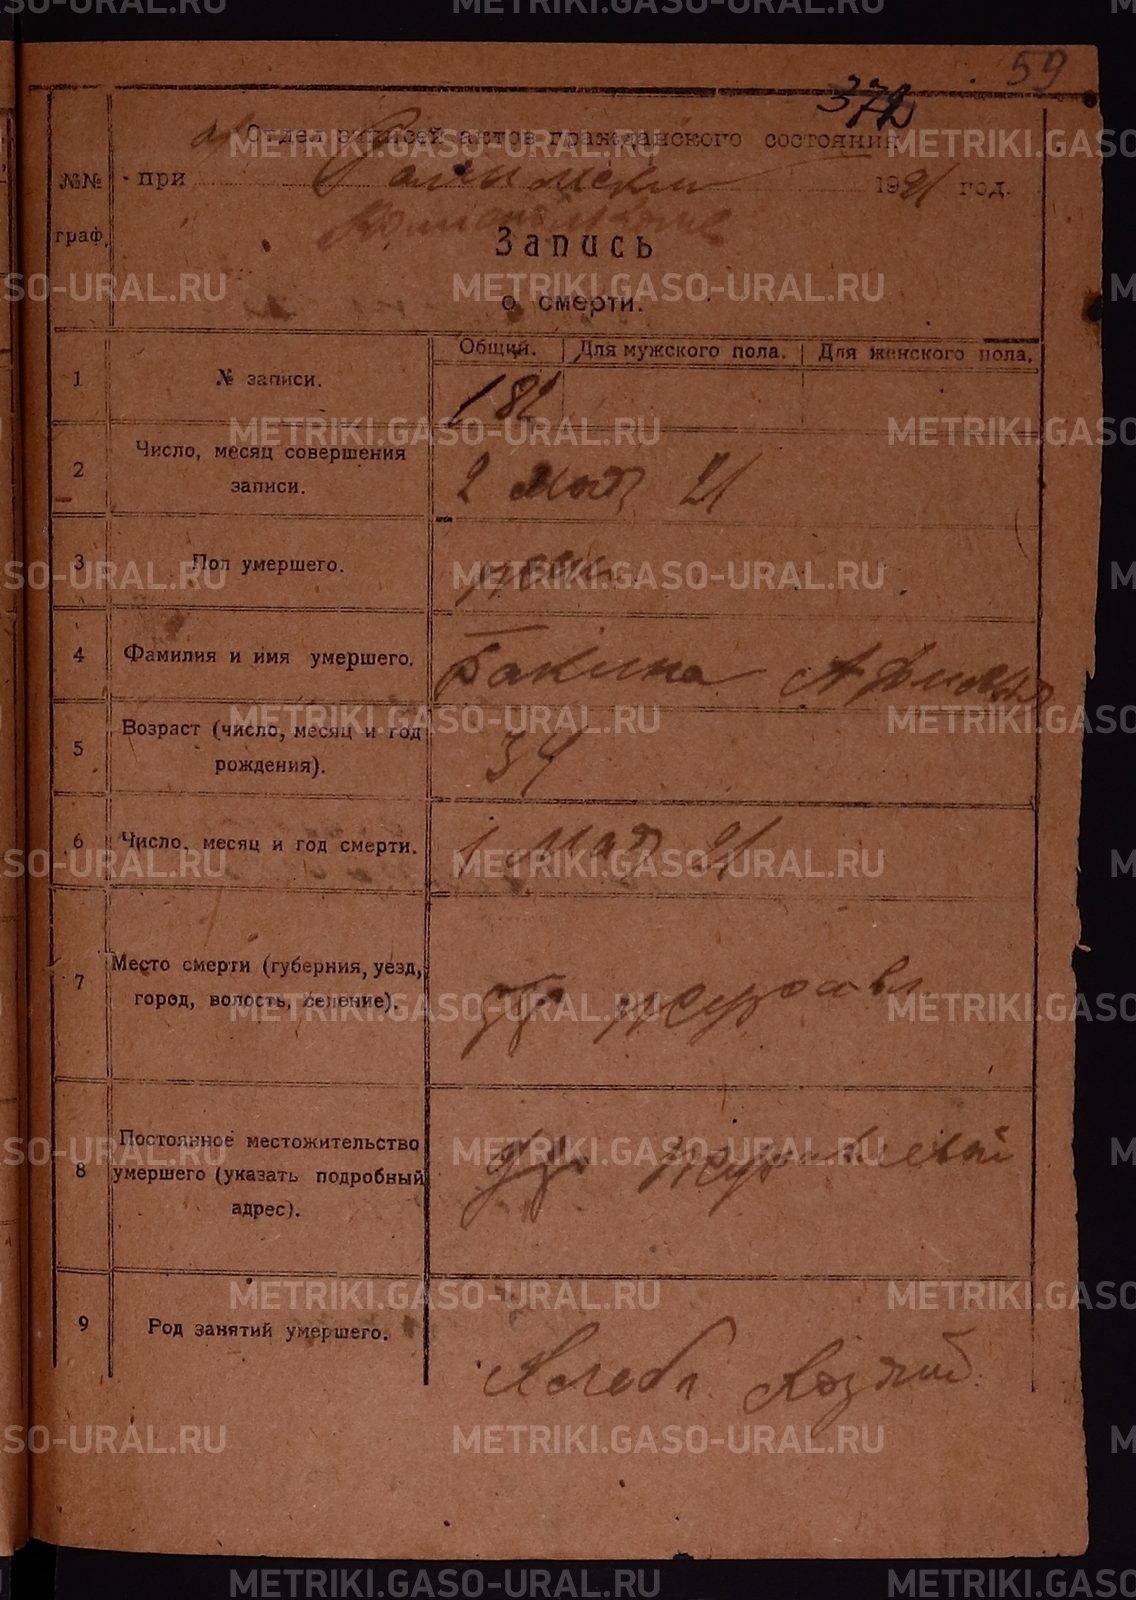 59
372
Отдел записей актов гражданского состояния
№№ граф.
при 1921 год.
Запись
о смерти.
Общий. Для мужского пола. Для женского пола.
1 № записи. 182
2 Число, месяц совершения записи. 2 Мая 21
3 Пол умершего. жен
4 Фамилия и имя умершего. Бакина
5 Возраст (число, месяц и год рождения). 34
6 Число, месяц и год смерти. 1 Мая 21
7 Место смерти (губерния, уезд, город, волость, селение). Журавл.
8 Постоянное местожительство умершего (указать подробный адрес). Журавлевой
9 Род занятий умершего. Хлебп.
METRIKI.GASO-URAL.RU